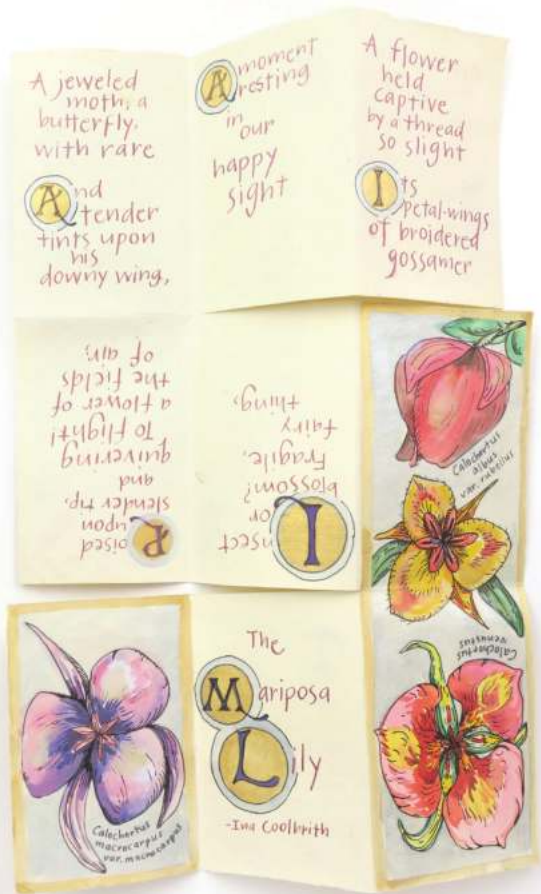 A jeweled
moth, a
butterfly,
with rare
And
tender
tints upon
his
downy wing,
A moment
resting
in
our
happy
sight
A flower
held
captive
by a thread
so slight
Its
petal-wings
of broidered
gossamer
Insect
or
blossom?
Fragile,
fairy
thing,
Poised
upon
slender tip,
and
quivering
To flight!
a flower of
the fields
of air,
Calochortus
albus
var. rubellus
Calochortus
venustus
Calochortus
macrocarpus
var. macrocarpus
The
Mariposa
Lily
-Ina Coolbrith